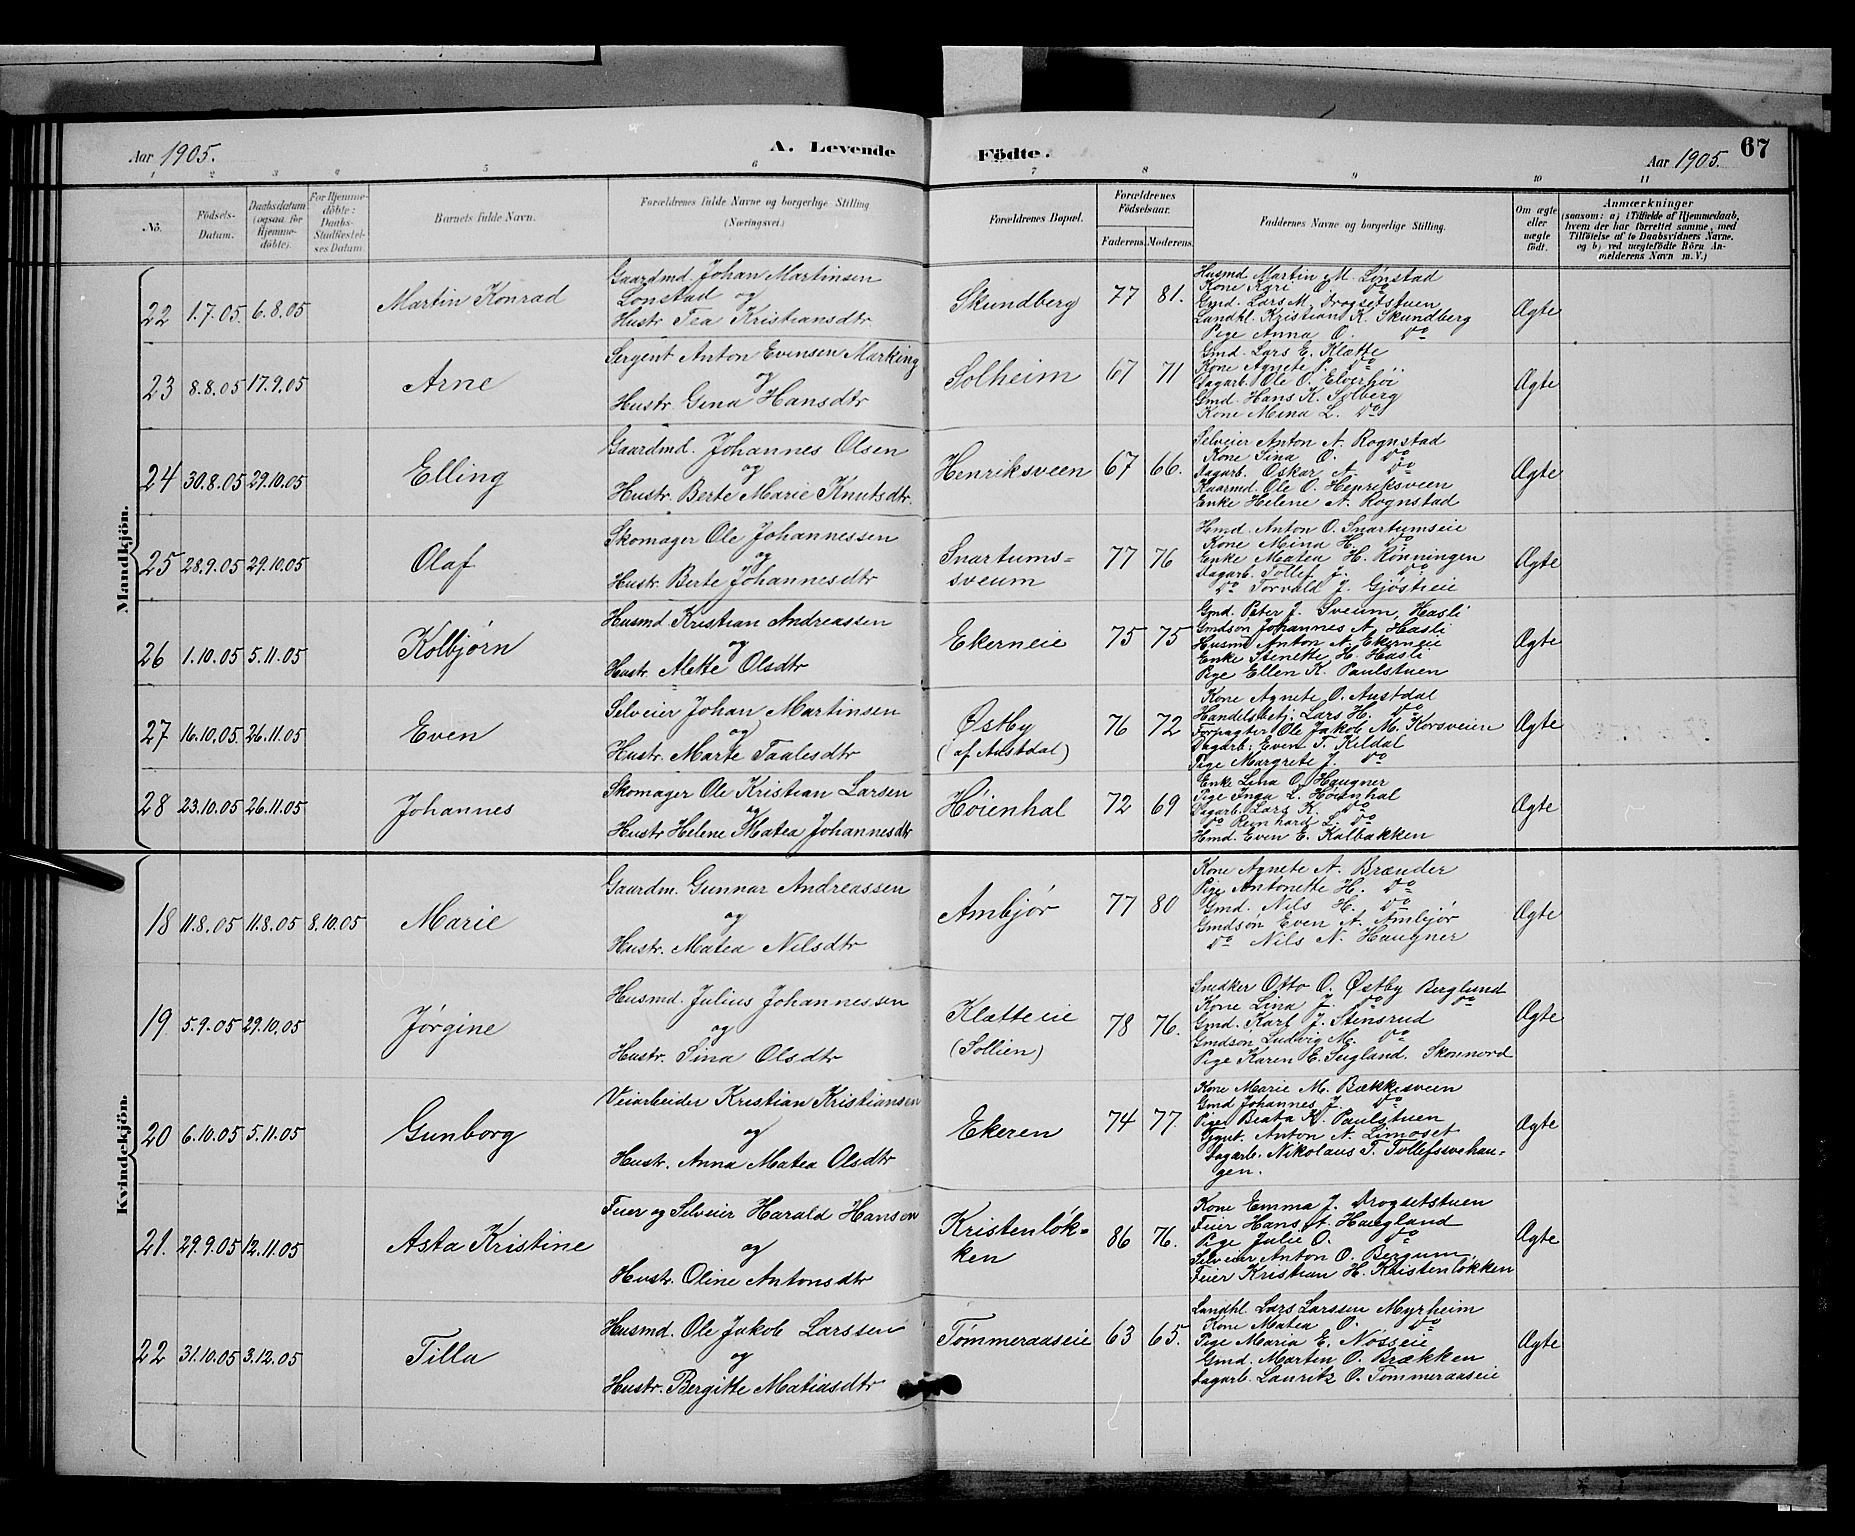 Aar 1905.
A. Levende
Födte.
Aar 1905.
67
1 2 3 4 5 6 7 8 9 10 11
No.
Födsels-Datum.
Daabsdatum (ogsaa for Hjemme-döbte).
For Hjemme-döbte: Daabs-Stadfæstel-ses Datum
Barnets fulde Navn.
Forældrenes fulde Navne og borgerlige Stilling (Næringsvei.)
Forældrenes Bopæl.
Forældrenes Födselsaar.
Faderens. Moderens.
Faddernes Navne og borgerlige Stilling.
Om ægte eller uægte födt.
Anmærkninger
(saasom: a) i Tilfælde af Hjemmedaab,
hvem der har forrettet samme, med
Tilföielse af to Daabsvidners Navne,
og b) ved uægtefödte Börn An-
melderens Navn m. V.)
Mandkjön.
22 1.7.05. 6.8.05 Martin Konrad
Gaardmd. Johan Martinsen
Lønstad og
Hustr. Tea Kristiansdtr.
Skundberg 77 81.
Husmd Martin M. Lønstad
Kone Kari O. Do
Gmd. Lars M. Drogsetstuen
Landhl. Kristian K. Skundberg
Pige Anna O. Do
Ægte
23 8.8.05 17.9.05 Arne
Sergent Anton Evensen Marking
og
Hustr. Gina Hansdtr
Solheim 67 71
Gmd. Lars E. Klætte
Kone Agnete P. Do
Dagarb. Ole O. Elverhöi
Gmd. Hans K. Solberg
Kone Mina L. Do
Ægte
24 30.8.05 29.10.05 Elling
Gaardmd. Johannes Olsen
og
Hustr. Berte Marie Knutsdtr.
Henriksveen 67 66.
Selveier Anton A. Rognstad
Kone Sina O. Do
Dagarb. Oskar A. Do
Kaarmd. Ole O. Henriksveen
Enke Helene A. Rognstad
Ægte
25 28.9.05 29.10.05 Olaf
Skomager Ole Johannessen
og
Hustr. Berte Johannesdtr
Snartums-
sveum 77 76
Hmd. Anton O. Snartumseie
Kone Mina H. Do
Enke Matea H. Rønningen
Dagarb. Tollef J. Do
Do Torvald J. Gjøstieie
Ægte
26 1.10.05 5.11.05 Kolbjørn
Husmd Kristian Andreassen
og
Hustr. Mette Olsdtr
Ekerneie 75 75
Gmd. Peter J. Sveum, Hasli
Gmdsøn Johannes A. Hasli
Husmd Anton A. Ekerneie
Enke Stenette H. Hasli
Pige Ellen K. Paulstuen
Ægte
27 16.10.05. 26.11.05 Even
Selveier Johan Martinsen
og
Hustr. Marte Taalesdtr
Østby
(af Austdal) 76 72
Kone Agnete O. Austdal
Handelsbetj. Lars H. Do
Forpagter Ole Jakob M. Korsveien
Dagarb: Even T. Kildal
Pige Margrete J. Do
Ægte
28 23.10.05 26.11.05 Johannes
Skomager Ole Kristian Larsen
og
Hustr Helene Matea Johannesdtr
Höienhal 72 69
Enke Lina O. Haugner
Pige Inga L. Höienhal
Dagarb. Lars K. Do
Do Reinhard L. Do
Hmd. Even E. Kalbakken
Ægte
Kvindekjön.
18 11.8.05 11.8.05 8.10.05 Marie
Gaardm. Gunnar Andreassen
og
Hustr. Matea Nilsdtr
Ambjør 77 80
Kone Agnete A. Brænder
Pige Antonette H. Do
Gmd. Nils H. Do
Gmdsøn Even A. Ambjør
Do Nils N. Haugner
Ægte
19 5.9.05 29.10.05 Jørgine
Husmd. Julius Johannessen
og
Hustr. Sina Olsdtr
Klætteeie
(Sollien) 78 76.
Snedker Otto O. Østby Berglund
Kone Lina J. Do Do
Gmd. Karl J. Stensrud
Gmdsøn Ludvig M. Do
Pige Karen E. Sugland. Skonnord
Ægte
20 6.10.05 5.11.05 Gunborg
Veiarbeider Kristian Kristiansen
og
Hustr. Anna Matea Olsdtr
Ekeren 74 77.
Kone Marie M. Bækkesveen
Gmd Johannes J. Do
Pige Beata K. Paulstuen
Tjgut. Anton A. Limoset
Dagarb. Nikolaus T. Tollefsvehau-
gen.
Ægte
21. 29.9.05 12.11.05 Asta Kristine
Feier og Selveier Harald Hansen
og
Hustr. Oline Antonsdtr
Kristenløk-
ken 86 76.
Kone Emma J. Drogsetstuen
Feier Hans A. Haugland
Pige Julie O. Do
Selveier Anton O. Bergum.
Feier Kristian H. Kristenløkken
Ægte
22 31.10.05 3.12.05 Tilla
Husmd. Ole Jakob Larssen
og
Hustr. Bergitte Matiasdtr
Tømmeraaseie 63 65.
Landhl. Lars Larssen Myrheim
Kone Matea O. Do
Pige Maria E. Nøsseie
Gmd. Martin O. Brækken
Dagarb. Laurits O. Tømmeraaseie
Ægte